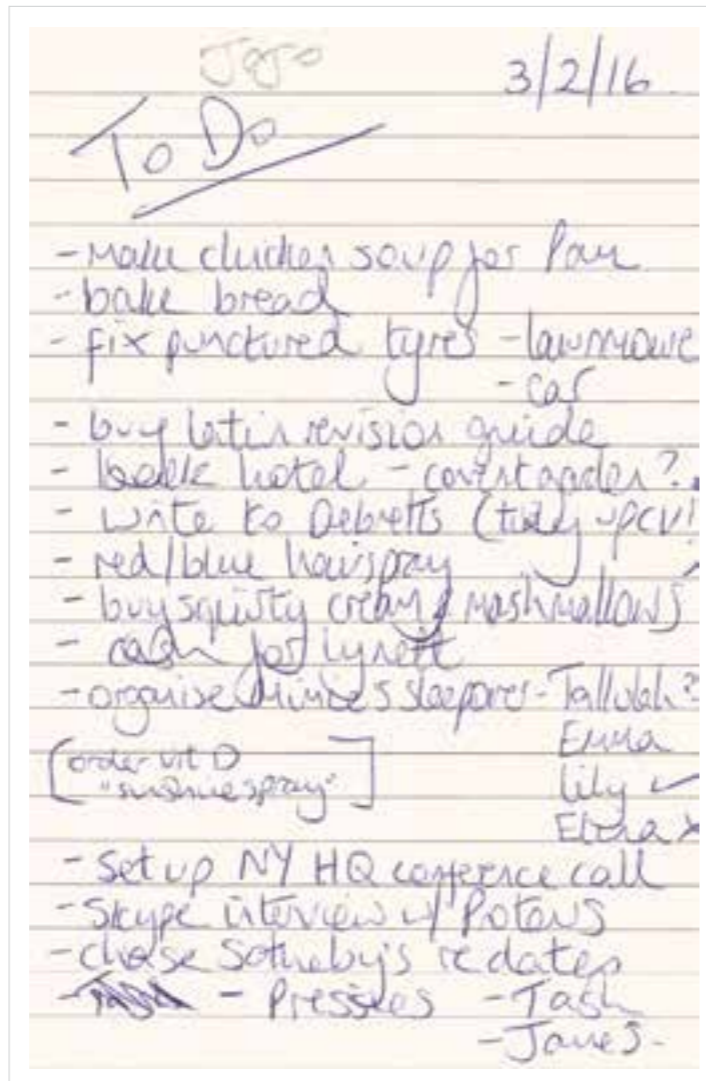 JoJo
3/2/16.
To Do
- Make chicken soup for Pam
- bake bread
- fix punctured tyres - lawnmowe
- car
- buy latin revision guide
- book hotel - covent garden?
- write to Debretts (tidy up CV!
- red/blue hairspray
- buy squirty cream & mashmallows
- cash for Lynett
- organise sleepover - Tallulah?
Emma
[order vit D
Lily ✓
"sunshine spray"]
Elena x
- Set up NY HQ conference call
- Skype interview w/
- chase Sotheby's re dates
- Pressies - Tash
- James.